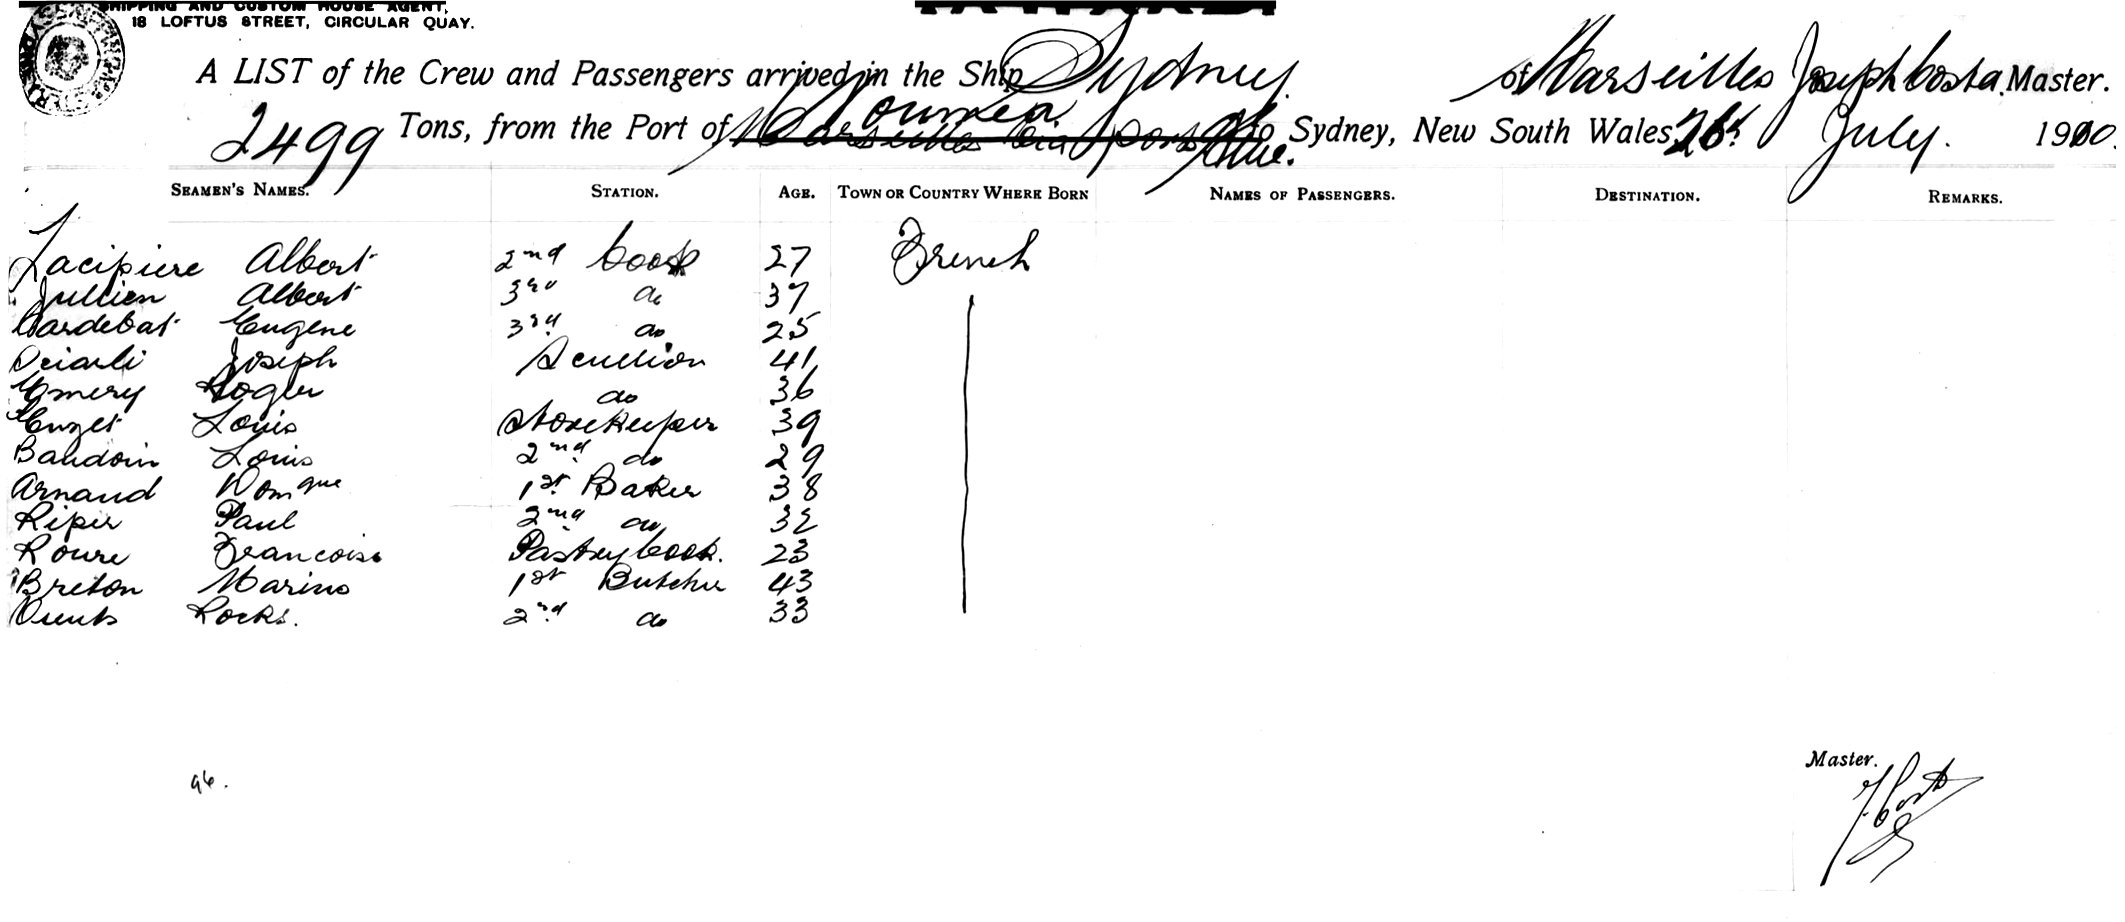 SHIPPING AND CUSTOM HOUSE AGENT,
18 LOFTUS STREET, CIRCULAR QUAY.
A LIST of the Crew and Passengers arrived in the Ship Sydney of Marseilles Joseph Costa Master.
Noumea
2499 Tons, from the Port of Marseilles via ports to Sydney, New South Wales, 26th July. 1910.
SEAMEN'S NAMES. STATION. AGE. TOWN OR COUNTRY WHERE BORN NAMES OF PASSENGERS. DESTINATION. REMARKS.
Lacipiere Albert 2nd Cook 27 French
Jullien Albert 3rd do 37
Cardebat Eugene 3rd do 25
Joseph Scullion 41
Emery Roger do 36
Louis Storekeeper 39
Baudoin Louis 2nd do 29
Arnaud Domque 1st Baker 38
Riper Paul 2nd do 32
Roure Francois Pastrycook. 23
Breton Marino 1st Butcher 43
Rocks. 2nd do 33
Master.
J Costa
96.